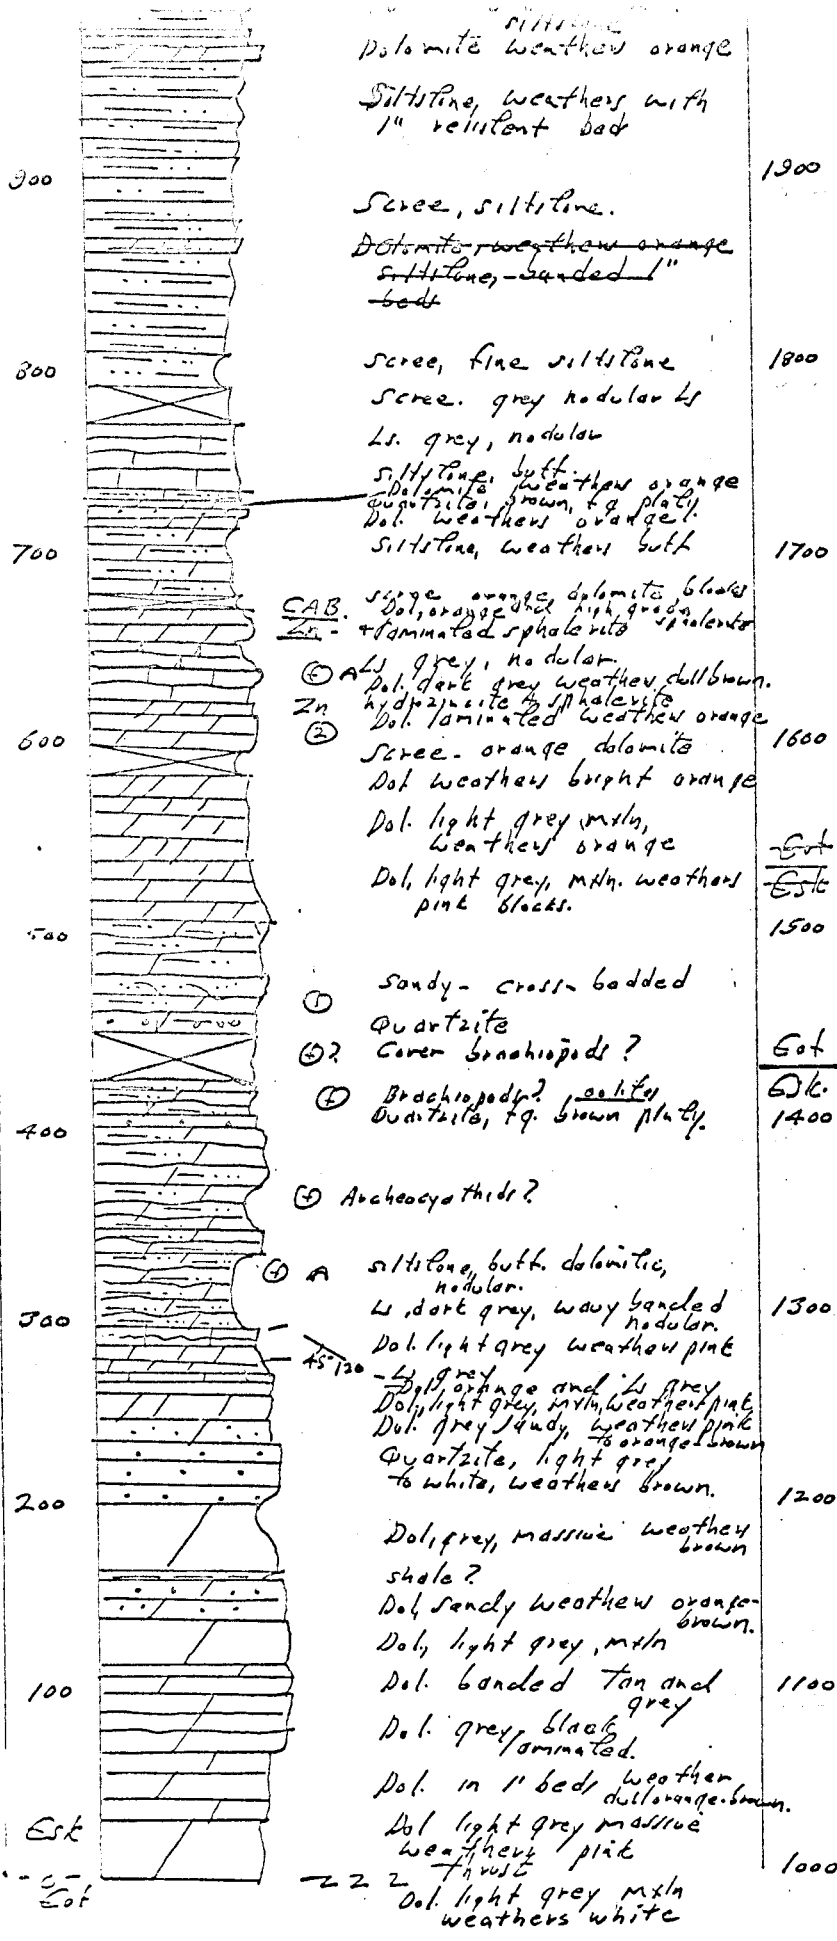 siltstone
Dolomite weathers orange
Siltstone, weathers with
1" resistent bed
900
1900
Scree, siltstone.
Dolomite, weathers orange
siltstone, banded 1"
beds
800
scree, fine siltstone
1800
scree. grey nodular Ls
Ls. grey, nodular
siltstone, buff.
Dolomite weathers orange
Quartzite, brown, fg platy
Dol. weathers orange.
700
siltstone, weathers buff
1700
orange dolomite blocks
CAB. Dol, orange and high grade sphalerite
Zn - + laminated sphalerite
⊕ A Ls grey, nodular.
Dol. dark grey weathers dull brown.
Zn hydrozincite & sphalerite
② Dol. laminated weathers orange
600
Scree - orange dolomite
1600
Dol weathers bright orange
Dol. light grey, mxln,
weathers orange
Єot
Dol, light grey, mxln. weathers
Єsk
pink blocks.
500
1500
①
Sandy - cross-bedded
Quartzite
⊕? Cover brachiopods?
Єot
Єsk.
⊕ Brachiopods? oolites
Quartzite, fg. brown platy.
400
1400
⊕ Archeocyathids?
⊕ A siltstone, buff. dolomitic,
nodular.
300
Ls, dark grey, wavy banded
nodular.
1300
Dol. light grey weathers pink
45°/20
- Ls grey
Dol, orange and Ls grey
Dol, light grey, mxln, weathers pink
Dol. grey sandy, weathers pink
to orange-brown
Quartzite, light grey
to white, weathers brown.
200
1200
Dol, grey, massive weathers
brown
shale?
Dol, sandy weathers orange-
brown.
Dol, light grey, mxln
100
Dol. banded tan and
grey
1100
Dol. grey, black
laminated.
Dol. in 1' beds weather
dull orange-brown.
Єsk
Dol light grey massive
weathers pink
Thrust
1000
Єot
Dol. light grey mxln
weathers white